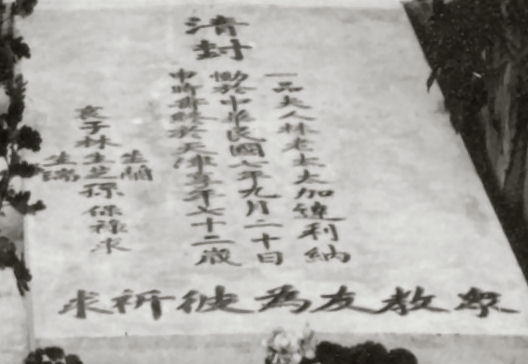 清封
一品夫人林老太太加達利納
慟於中華民國七年九月二十日
申時壽終於天津享年七十二歲
生蘭
哀子林生芝孫保祿求
生瑞
衆教友為彼祈求